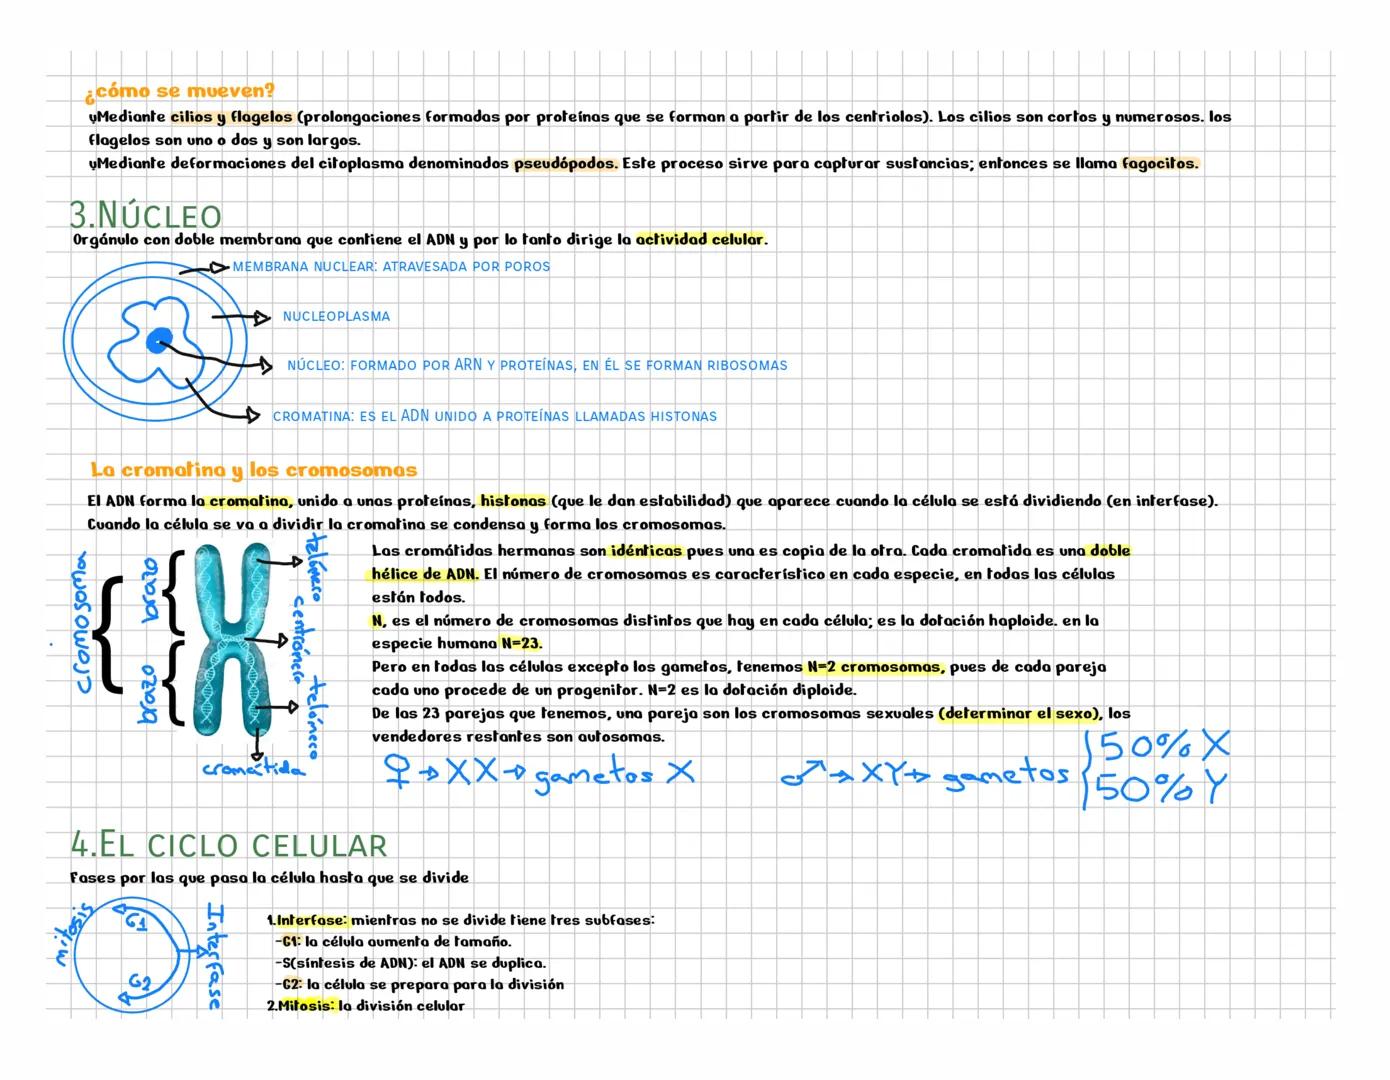 ¿cómo se mueven?
ɣMediante cilios y flagelos (prolongaciones formadas por proteínas que se forman a partir de los centriolos). Los cilios son cortos y numerosos. los
flagelos son uno o dos y son largos.
ɣMediante deformaciones del citoplasma denominados pseudópodos. Este proceso sirve para capturar sustancias; entonces se llama fagocitos.
3.Núcleo
Orgánulo con doble membrana que contiene el ADN y por lo tanto dirige la actividad celular.
MEMBRANA NUCLEAR: ATRAVESADA POR POROS
NUCLEOPLASMA
NÚCLEO: FORMADO POR ARN Y PROTEÍNAS, EN ÉL SE FORMAN RIBOSOMAS
CROMATINA: ES EL ADN UNIDO A PROTEÍNAS LLAMADAS HISTONAS
La cromatina y los cromosomas
El ADN forma la cromatina, unido a unas proteínas, histonas (que le dan estabilidad) que aparece cuando la célula se está dividiendo (en interfase).
Cuando la célula se va a dividir la cromatina se condensa y forma los cromosomas.
cromosoma
brazo
brazo
telómero
centrómero
telómero
cromátida
Las cromátidas hermanas son idénticas pues una es copia de la otra. Cada cromatida es una doble
hélice de ADN. El número de cromosomas es característico en cada especie, en todas las células
están todos.
N, es el número de cromosomas distintos que hay en cada célula; es la dotación haploide. en la
especie humana N=23.
Pero en todas las células excepto los gametos, tenemos N=2 cromosomas, pues de cada pareja
cada uno procede de un progenitor. N=2 es la dotación diploide.
De las 23 parejas que tenemos, una pareja son los cromosomas sexuales (determinar el sexo), los
vendedores restantes son autosomas.
♀→XX→gametos X
♂→XY→gametos { 50% X
50% Y
4.El ciclo celular
Fases por las que pasa la célula hasta que se divide
mitosis
G1
G2
Interfase
1.Interfase: mientras no se divide tiene tres subfases:
-G1: la célula aumenta de tamaño.
-S(síntesis de ADN): el ADN se duplica.
-G2: la célula se prepara para la división
2.Mitosis: la división celular